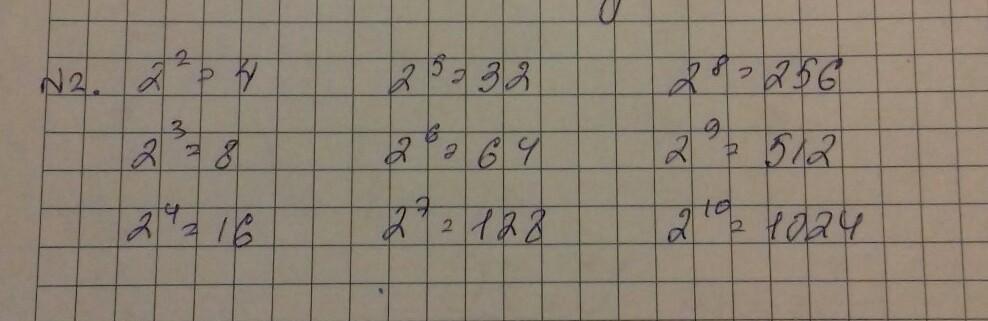 N2. 2² = 4 2⁵ = 32 2⁸ = 256
2³ = 8 2⁶ = 64 2⁹ = 512
2⁴ = 16 2⁷ = 128 2¹⁰ = 1024